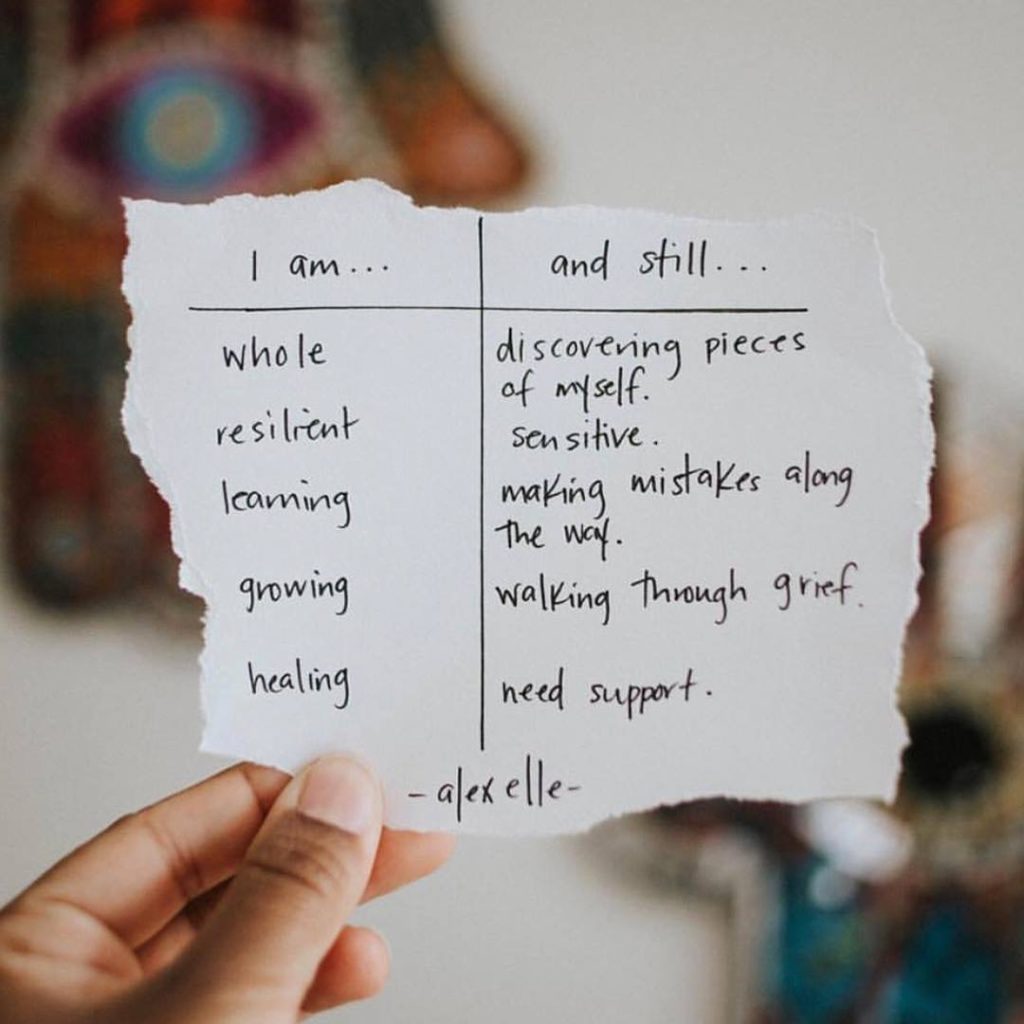 I am... and still...
whole discovering pieces
of myself.
resilient sensitive.
learning making mistakes along
the way.
growing walking through grief.
healing need support.
-alex elle-